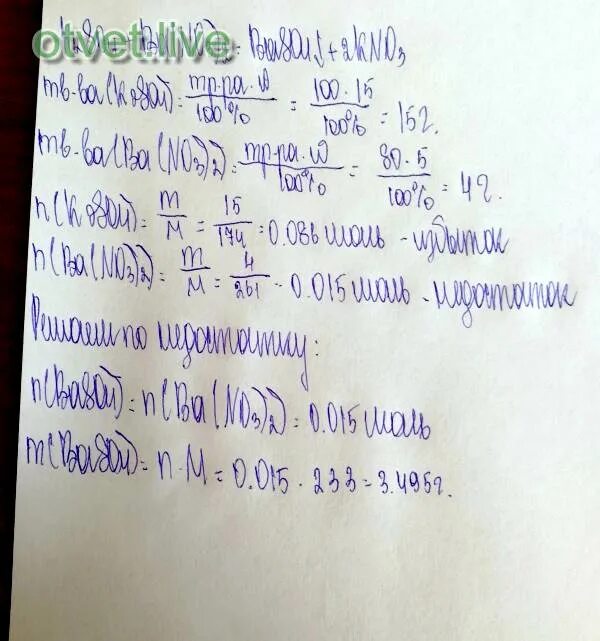 otvet.live
K2SO4 + Ba(NO3)2 = BaSO4↓ + 2KNO3
mв-ва(K2SO4) = mр.ра.ω / 100% = 100·15 / 100% = 15г.
mв-ва(Ba(NO3)2) = mр.ра.ω / 100% = 80·5 / 100% = 4г.
n(K2SO4) = m / M = 15 / 174 = 0.086 моль - избыток
n(Ba(NO3)2) = m / M = 4 / 261 = 0.015 моль - недостаток
Решаем по недостатку:
n(BaSO4) = n(Ba(NO3)2) = 0.015 моль
m(BaSO4) = n·M = 0.015 · 233 = 3.495г.